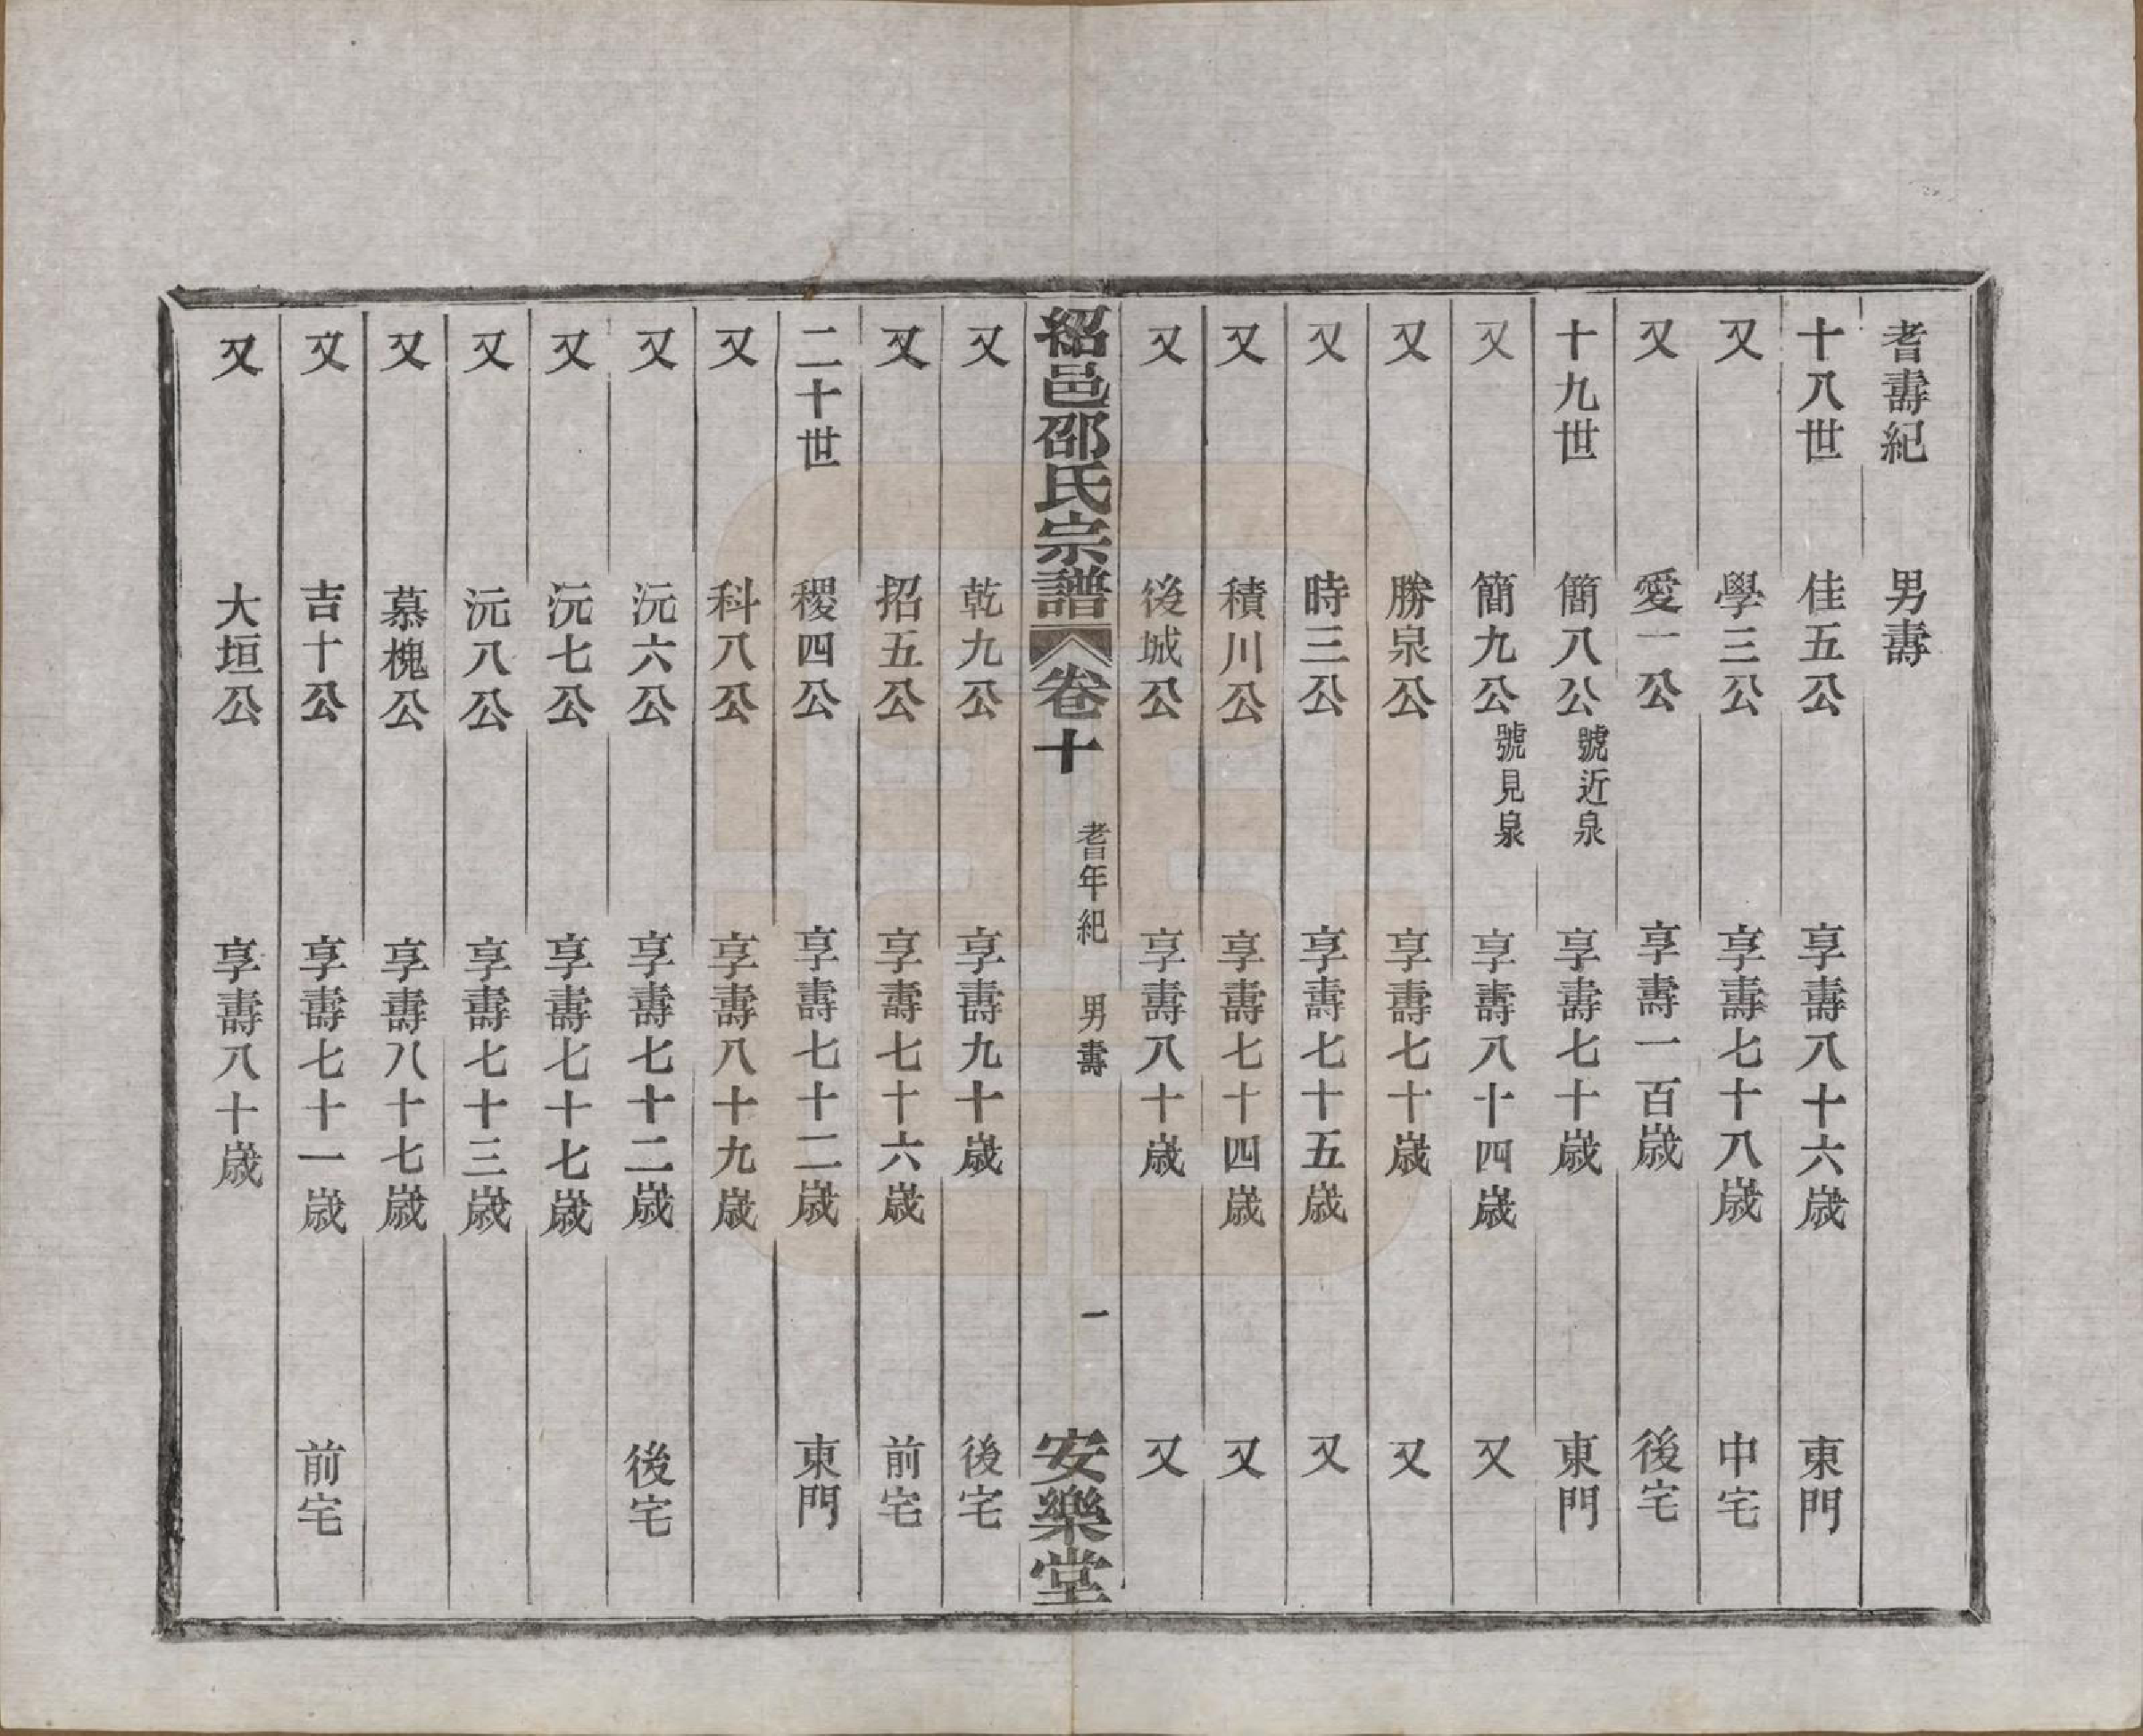 耆壽紀　男壽
十八世　佳五公　享壽八十六歲　東門
又　學三公　享壽七十八歲　中宅
又　愛一公　享壽一百歲　後宅
十九世　簡八公號近泉　享壽七十歲　東門
又　簡九公號見泉　享壽八十四歲　又
又　勝泉公　享壽七十歲　又
又　時三公　享壽七十五歲　又
又　積川公　享壽七十四歲　又
又　後城公　享壽八十歲　又
紹邑邵氏宗譜　卷十　耆年紀　男壽　一　安樂堂
又　乾九公　享壽九十歲　後宅
又　招五公　享壽七十六歲　前宅
二十世　稷四公　享壽七十二歲　東門
又　科八公　享壽八十九歲
又　沅六公　享壽七十二歲　後宅
又　沅七公　享壽七十七歲
又　沅八公　享壽七十三歲
又　慕槐公　享壽八十七歲
又　吉十公　享壽七十一歲　前宅
又　大垣公　享壽八十歲